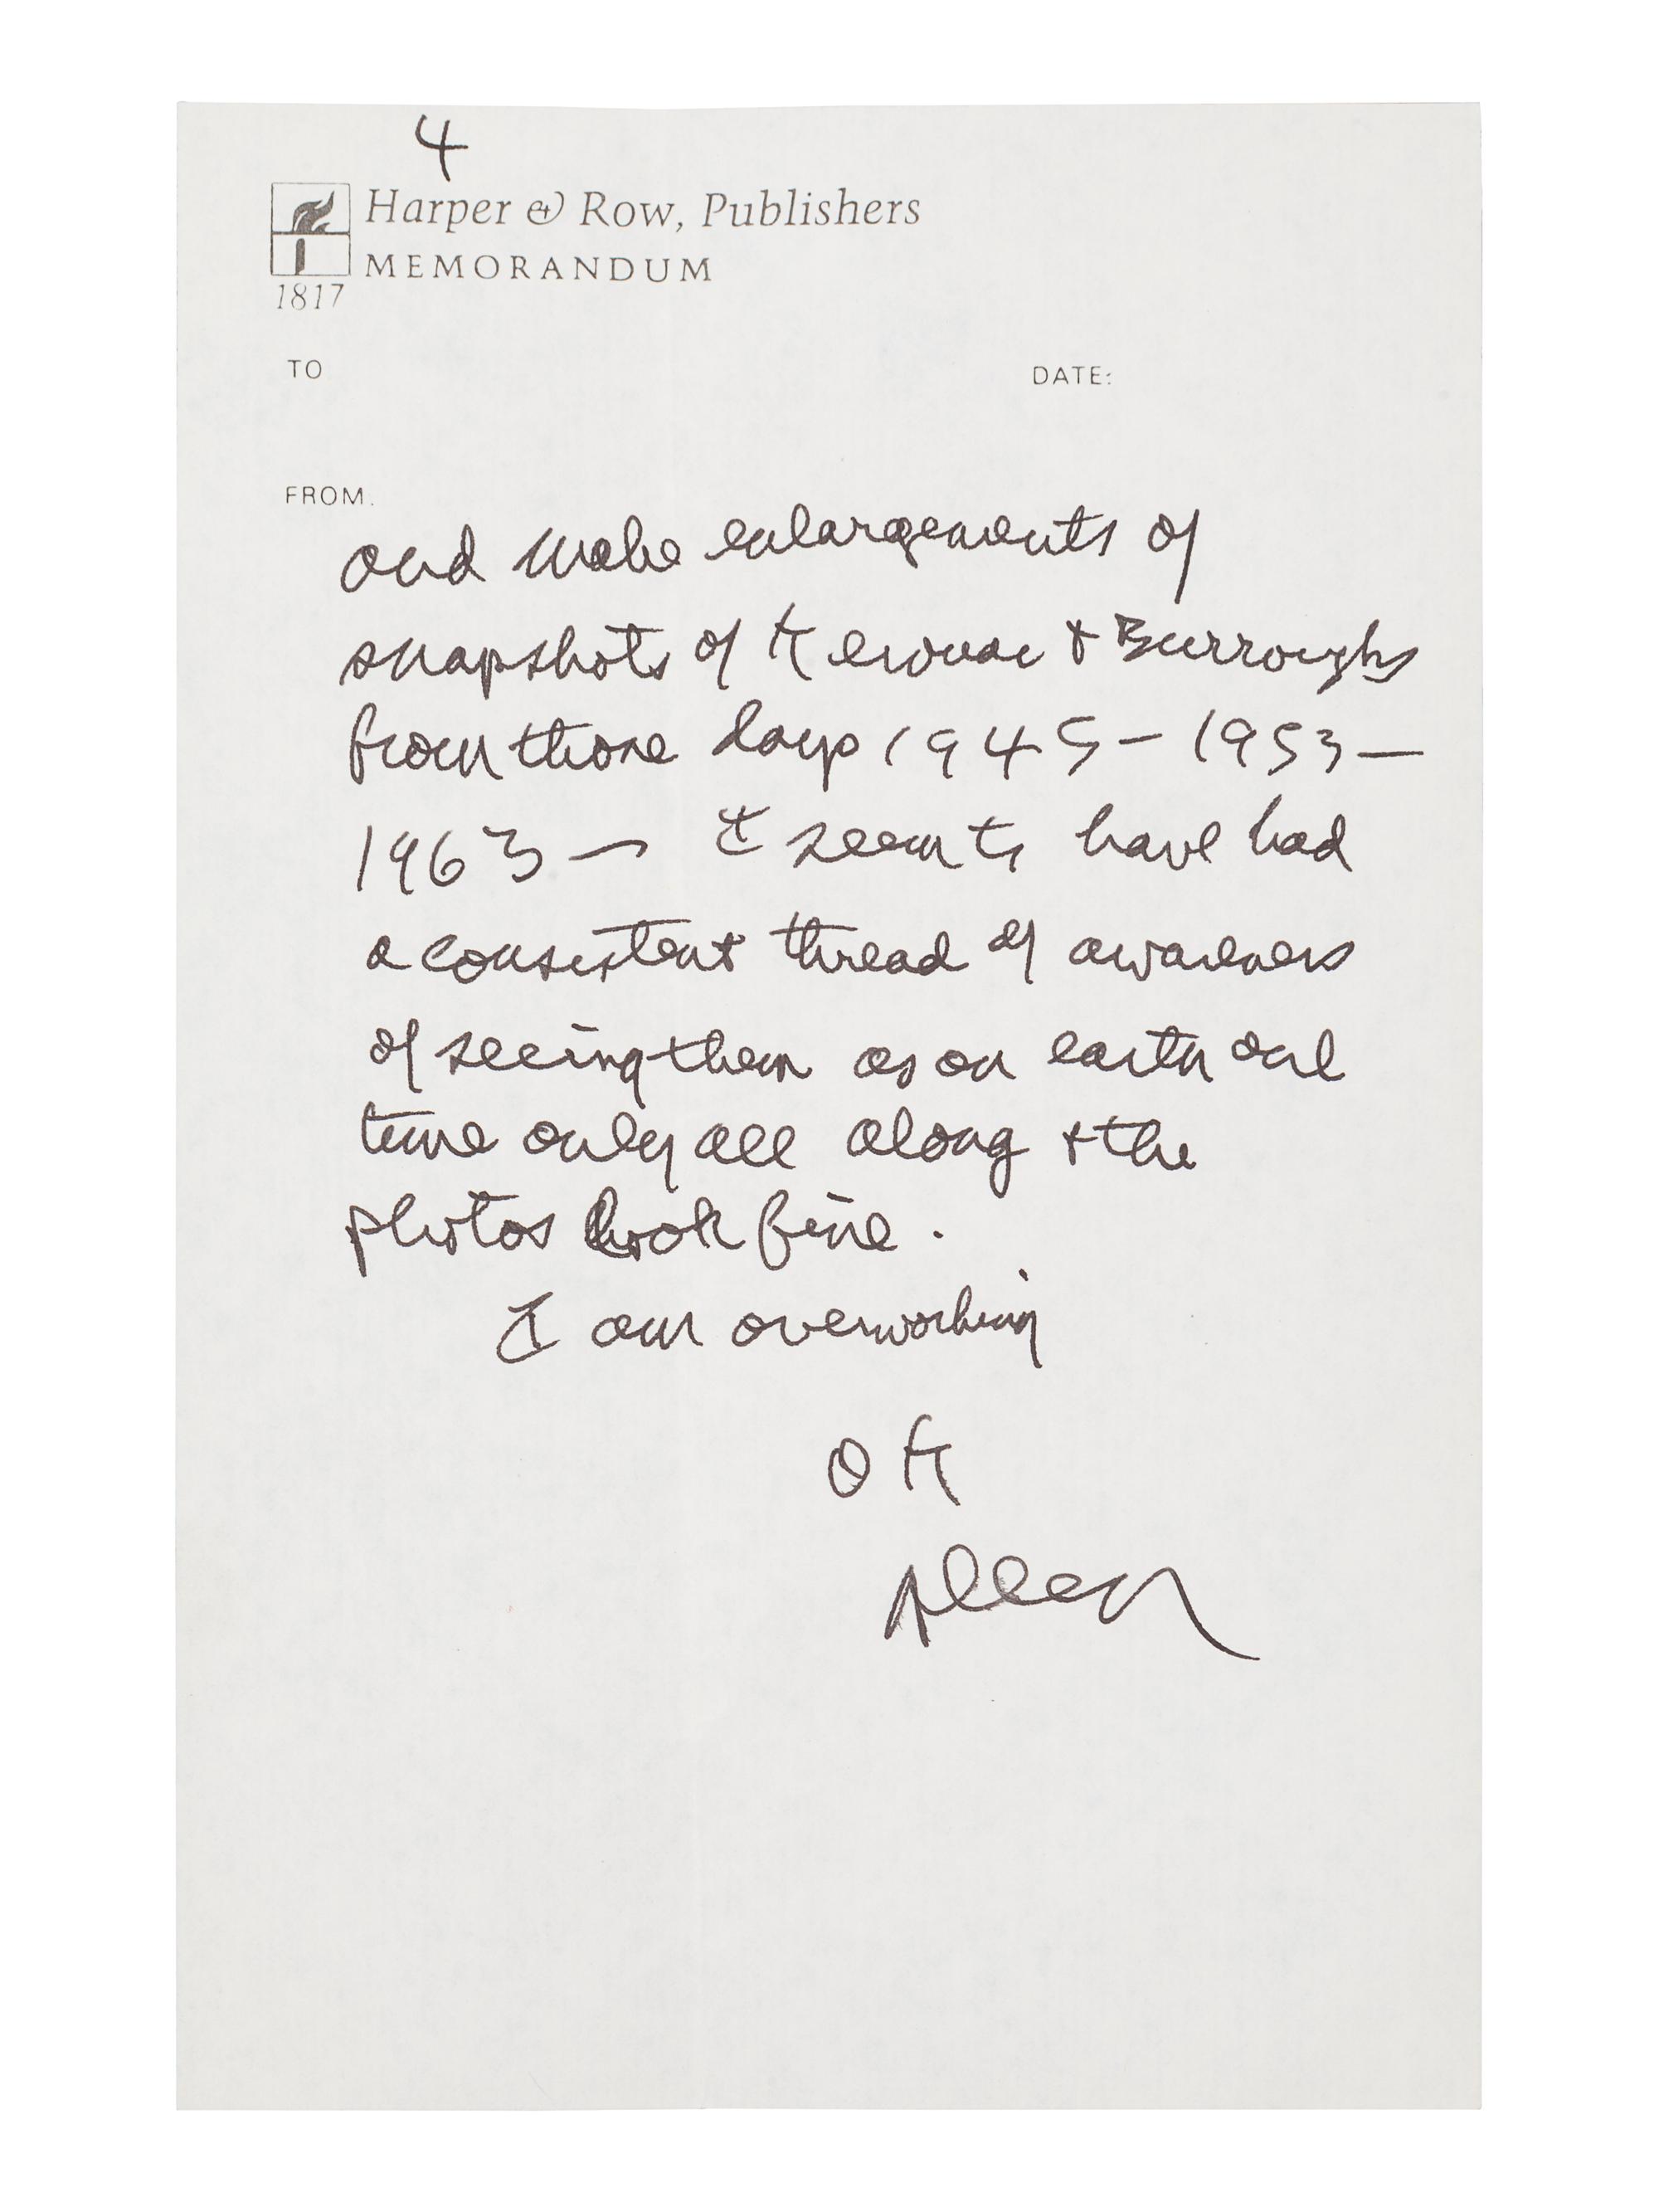 4
Harper & Row, Publishers
MEMORANDUM
1817
TO
DATE:
FROM.
and make enlargements of
snapshots of Kerouac & Burroughs
from those days 1945 – 1953 –
1963 – I seem to have had
a consistent thread of awareness
of seeing them as on earth and
time only all along & the
photos look fine.
I am overworking
OK
Allen